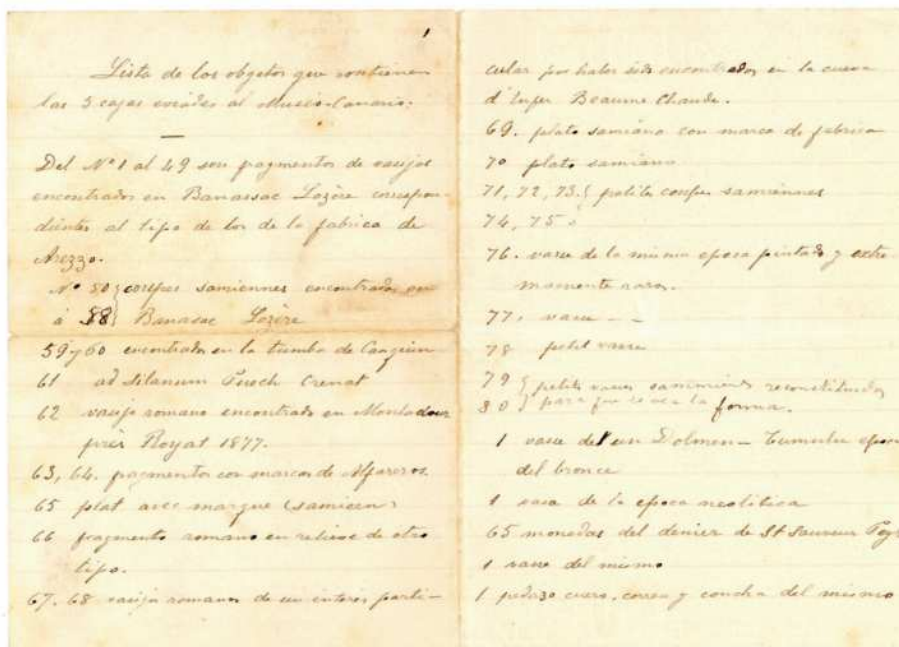 1
Lista de los objetos que contienen
las 3 cajas enviadas al Museo-Canario.
Del Nº 1 al 49 son fragmentos de vasijas
encontrados en Banassac Lozère correspon-
dientes al tipo de los de la fabrica de
Arezzo.
Nº 50 } coupes samiennes encontradas en
á 58 } Banasac Lozère
59 y 60 encontrados en la tumba de
61 ad Silanum Puech Crenat
62 vasija romana encontrada en
près Royat 1877.
63, 64. fragmentos con marcas de Alfareros.
65 plat avec marque (samien)
66 fragmento romano en relieve de otro
tipo.
67, 68 vasijas romanas de un interés parti-
cular por haber sido encontradas en la cueva
d' Beaume Chaude.
69. plato samiano con marca de fabrica
70 plato samiano
71, 72, 73. } petites coupes samiennes
74, 75
76. vase de la misma epoca pintado y extre
mamente raros.
77. vase - -
78 petit vase
79 } petits vases reconstituidos
80 } para que se vea la forma.
1 vase del un Dolmen - Tumulu epoca
del bronce
1 vase de la epoca neolitica
65 monedas del denier de St Sauveur
1 vase del mismo
1 pedazo cuero, correa y concha del mismo